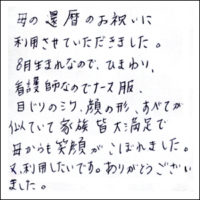 母の還暦のお祝いに
利用させていただきました。
8月生まれなので、ひまわり、
看護師なのでナース服、
目じりのシワ、顔の形、すべてが
似ていて家族皆大満足で
母からも笑顔がこぼれました。
又、利用したいです。ありがとうござい
ました。